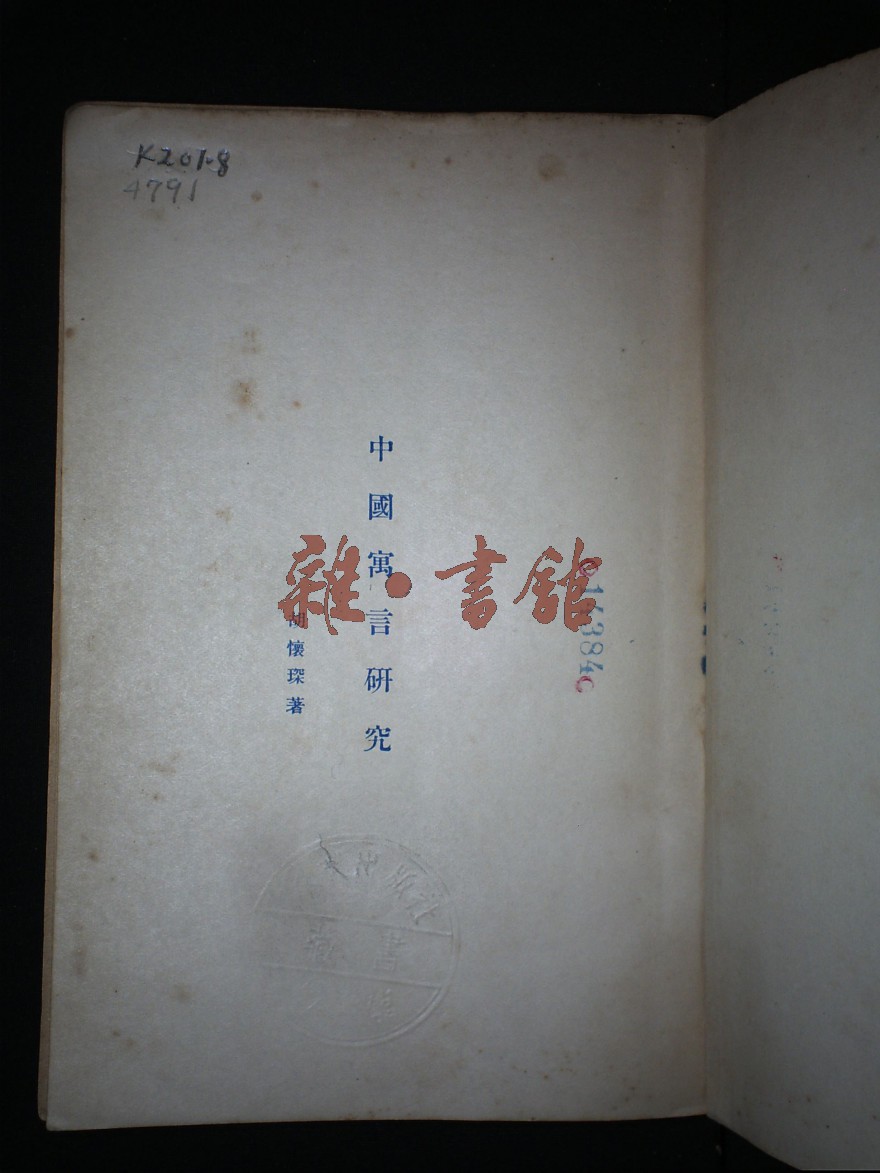 K201.8
4791
中國寓言研究
胡懷琛著
雜·書館
16384
出版社
書